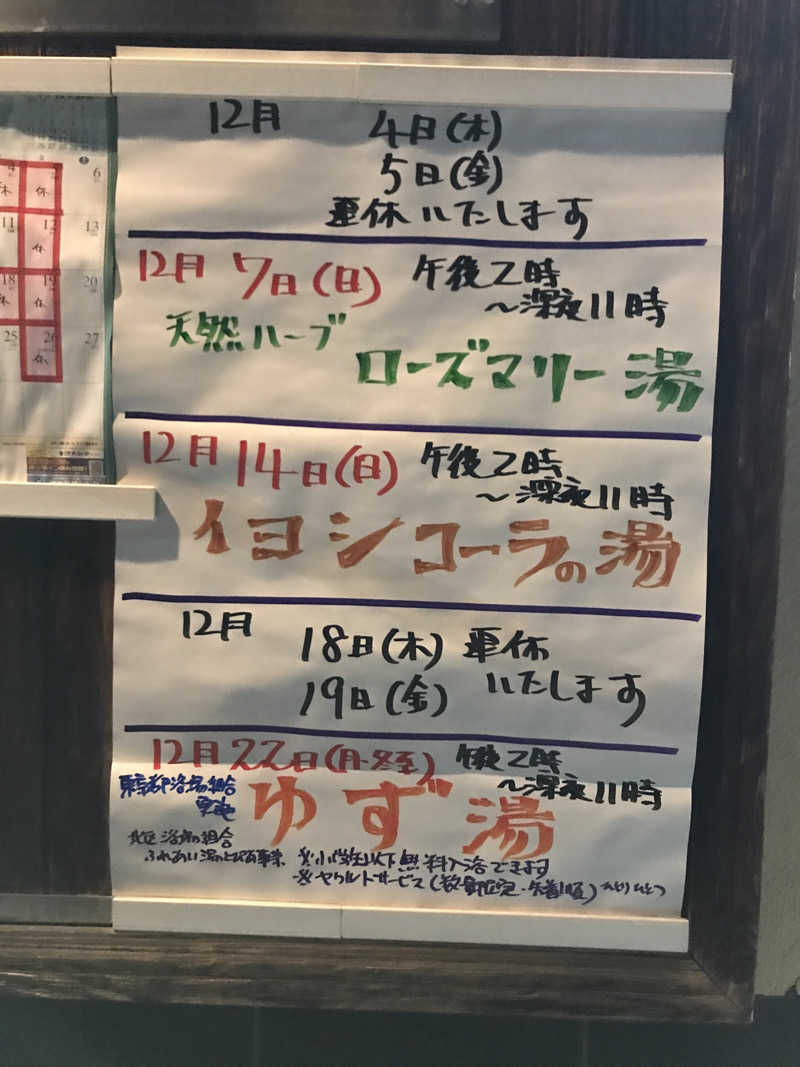 12月 4日(木)
5日(金)
連休いたします
12月 7日(日) 午後2時
〜深夜11時
天然ハーブ
ローズマリー湯
12月 14日(日) 午後2時
〜深夜11時
イヨシコーラの湯
12月 18日(木) 連休
19日(金) いたします
12月22日(月・冬至) 午後2時
〜深夜11時
東京都浴場組合
ゆず湯
北区浴場組合
ふれあい湯 事業 ※小学生以下無料入浴できます
※ヤクルトサービス(数量限定・先着順)ひとりひとつ
6
11 休 13
18 19 休 20
25 26 休 27